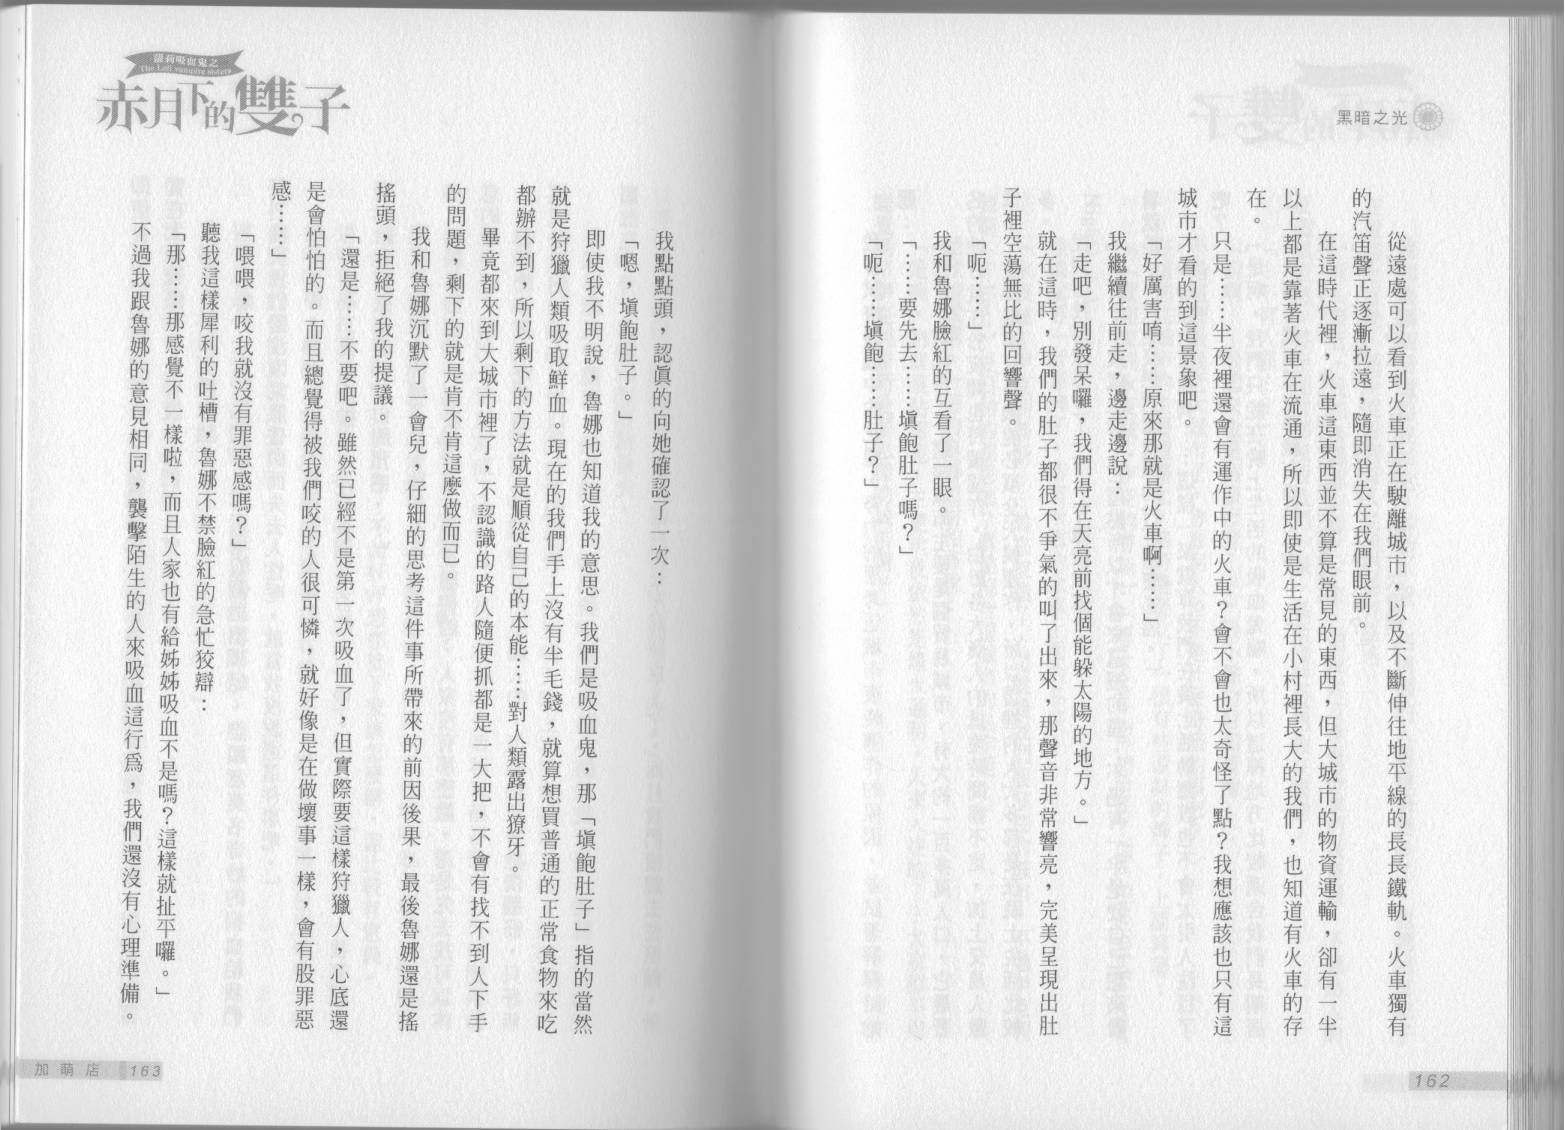 黑暗之光
從遠處可以看到火車正在駛離城市，以及不斷伸往地平線的長長鐵軌。火車獨有
的汽笛聲正逐漸拉遠，隨即消失在我們眼前。
在這時代裡，火車這東西並不算是常見的東西，但大城市的物資運輸，卻有一半
以上都是靠著火車在流通，所以即使是生活在小村裡長大的我們，也知道有火車的存
在。
只是……半夜裡還會有運作中的火車？會不會也太奇怪了點？我想應該也只有這
城市才看的到這景象吧。
「好厲害唷……原來那就是火車啊……」
我繼續往前走，邊走邊說：
「走吧，別發呆囉，我們得在天亮前找個能躲太陽的地方。」
就在這時，我們的肚子都很不爭氣的叫了出來，那聲音非常響亮，完美呈現出肚
子裡空蕩無比的回響聲。
「呃……」
我和魯娜臉紅的互看了一眼。
「……要先去……填飽肚子嗎？」
「呃……填飽……肚子？」
162
蘿莉吸血鬼之
The Loli vampire sisters
赤月下的雙子
我點點頭，認真的向她確認了一次：
「嗯，填飽肚子。」
即使我不明說，魯娜也知道我的意思。我們是吸血鬼，那「填飽肚子」指的當然
就是狩獵人類吸取鮮血。現在的我們手上沒有半毛錢，就算想買普通的正常食物來吃
都辦不到，所以剩下的方法就是順從自己的本能……對人類露出獠牙。
畢竟都來到大城市裡了，不認識的路人隨便抓都是一大把，不會有找不到人下手
的問題，剩下的就是肯不肯這麼做而已。
我和魯娜沉默了一會兒，仔細的思考這件事所帶來的前因後果，最後魯娜還是搖
搖頭，拒絕了我的提議。
「還是……不要吧。雖然已經不是第一次吸血了，但實際要這樣狩獵人，心底還
是會怕怕的。而且總覺得被我們咬的人很可憐，就好像是在做壞事一樣，會有股罪惡
感……」
「喂喂，咬我就沒有罪惡感嗎？」
聽我這樣犀利的吐槽，魯娜不禁臉紅的急忙狡辯：
「那……那感覺不一樣啦，而且人家也有給姊姊吸血不是嗎？這樣就扯平囉。」
不過我跟魯娜的意見相同，襲擊陌生的人來吸血這行為，我們還沒有心理準備。
加萌店 163